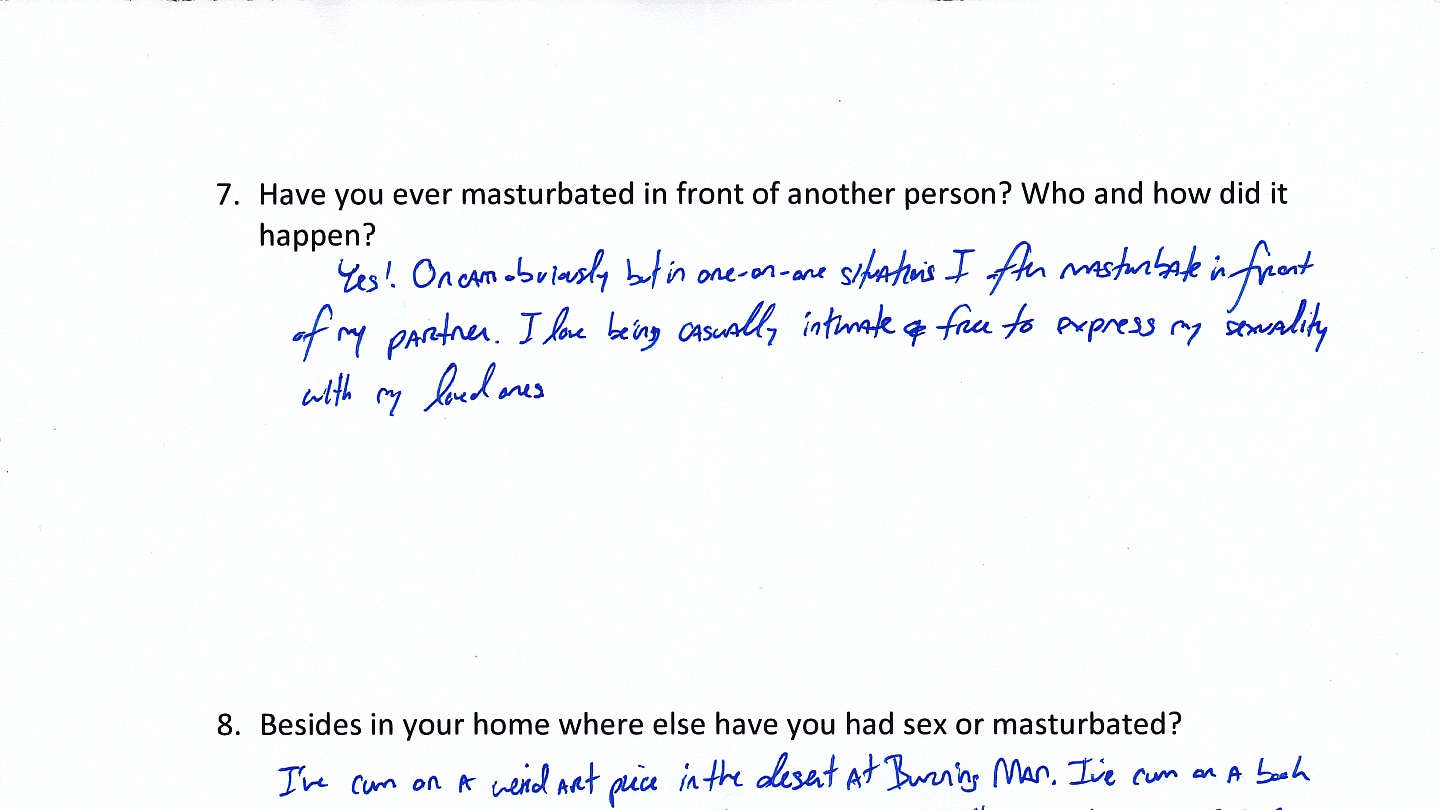 7. Have you ever masturbated in front of another person? Who and how did it
happen?
Yes! On cam obviously but in one-on-one situations I often masturbate in front
of my partner. I love being casually intimate & free to express my sexuality
with my loved ones
8. Besides in your home where else have you had sex or masturbated?
I've cum on a weird art piece in the desert at Burning Man. I've cum on a